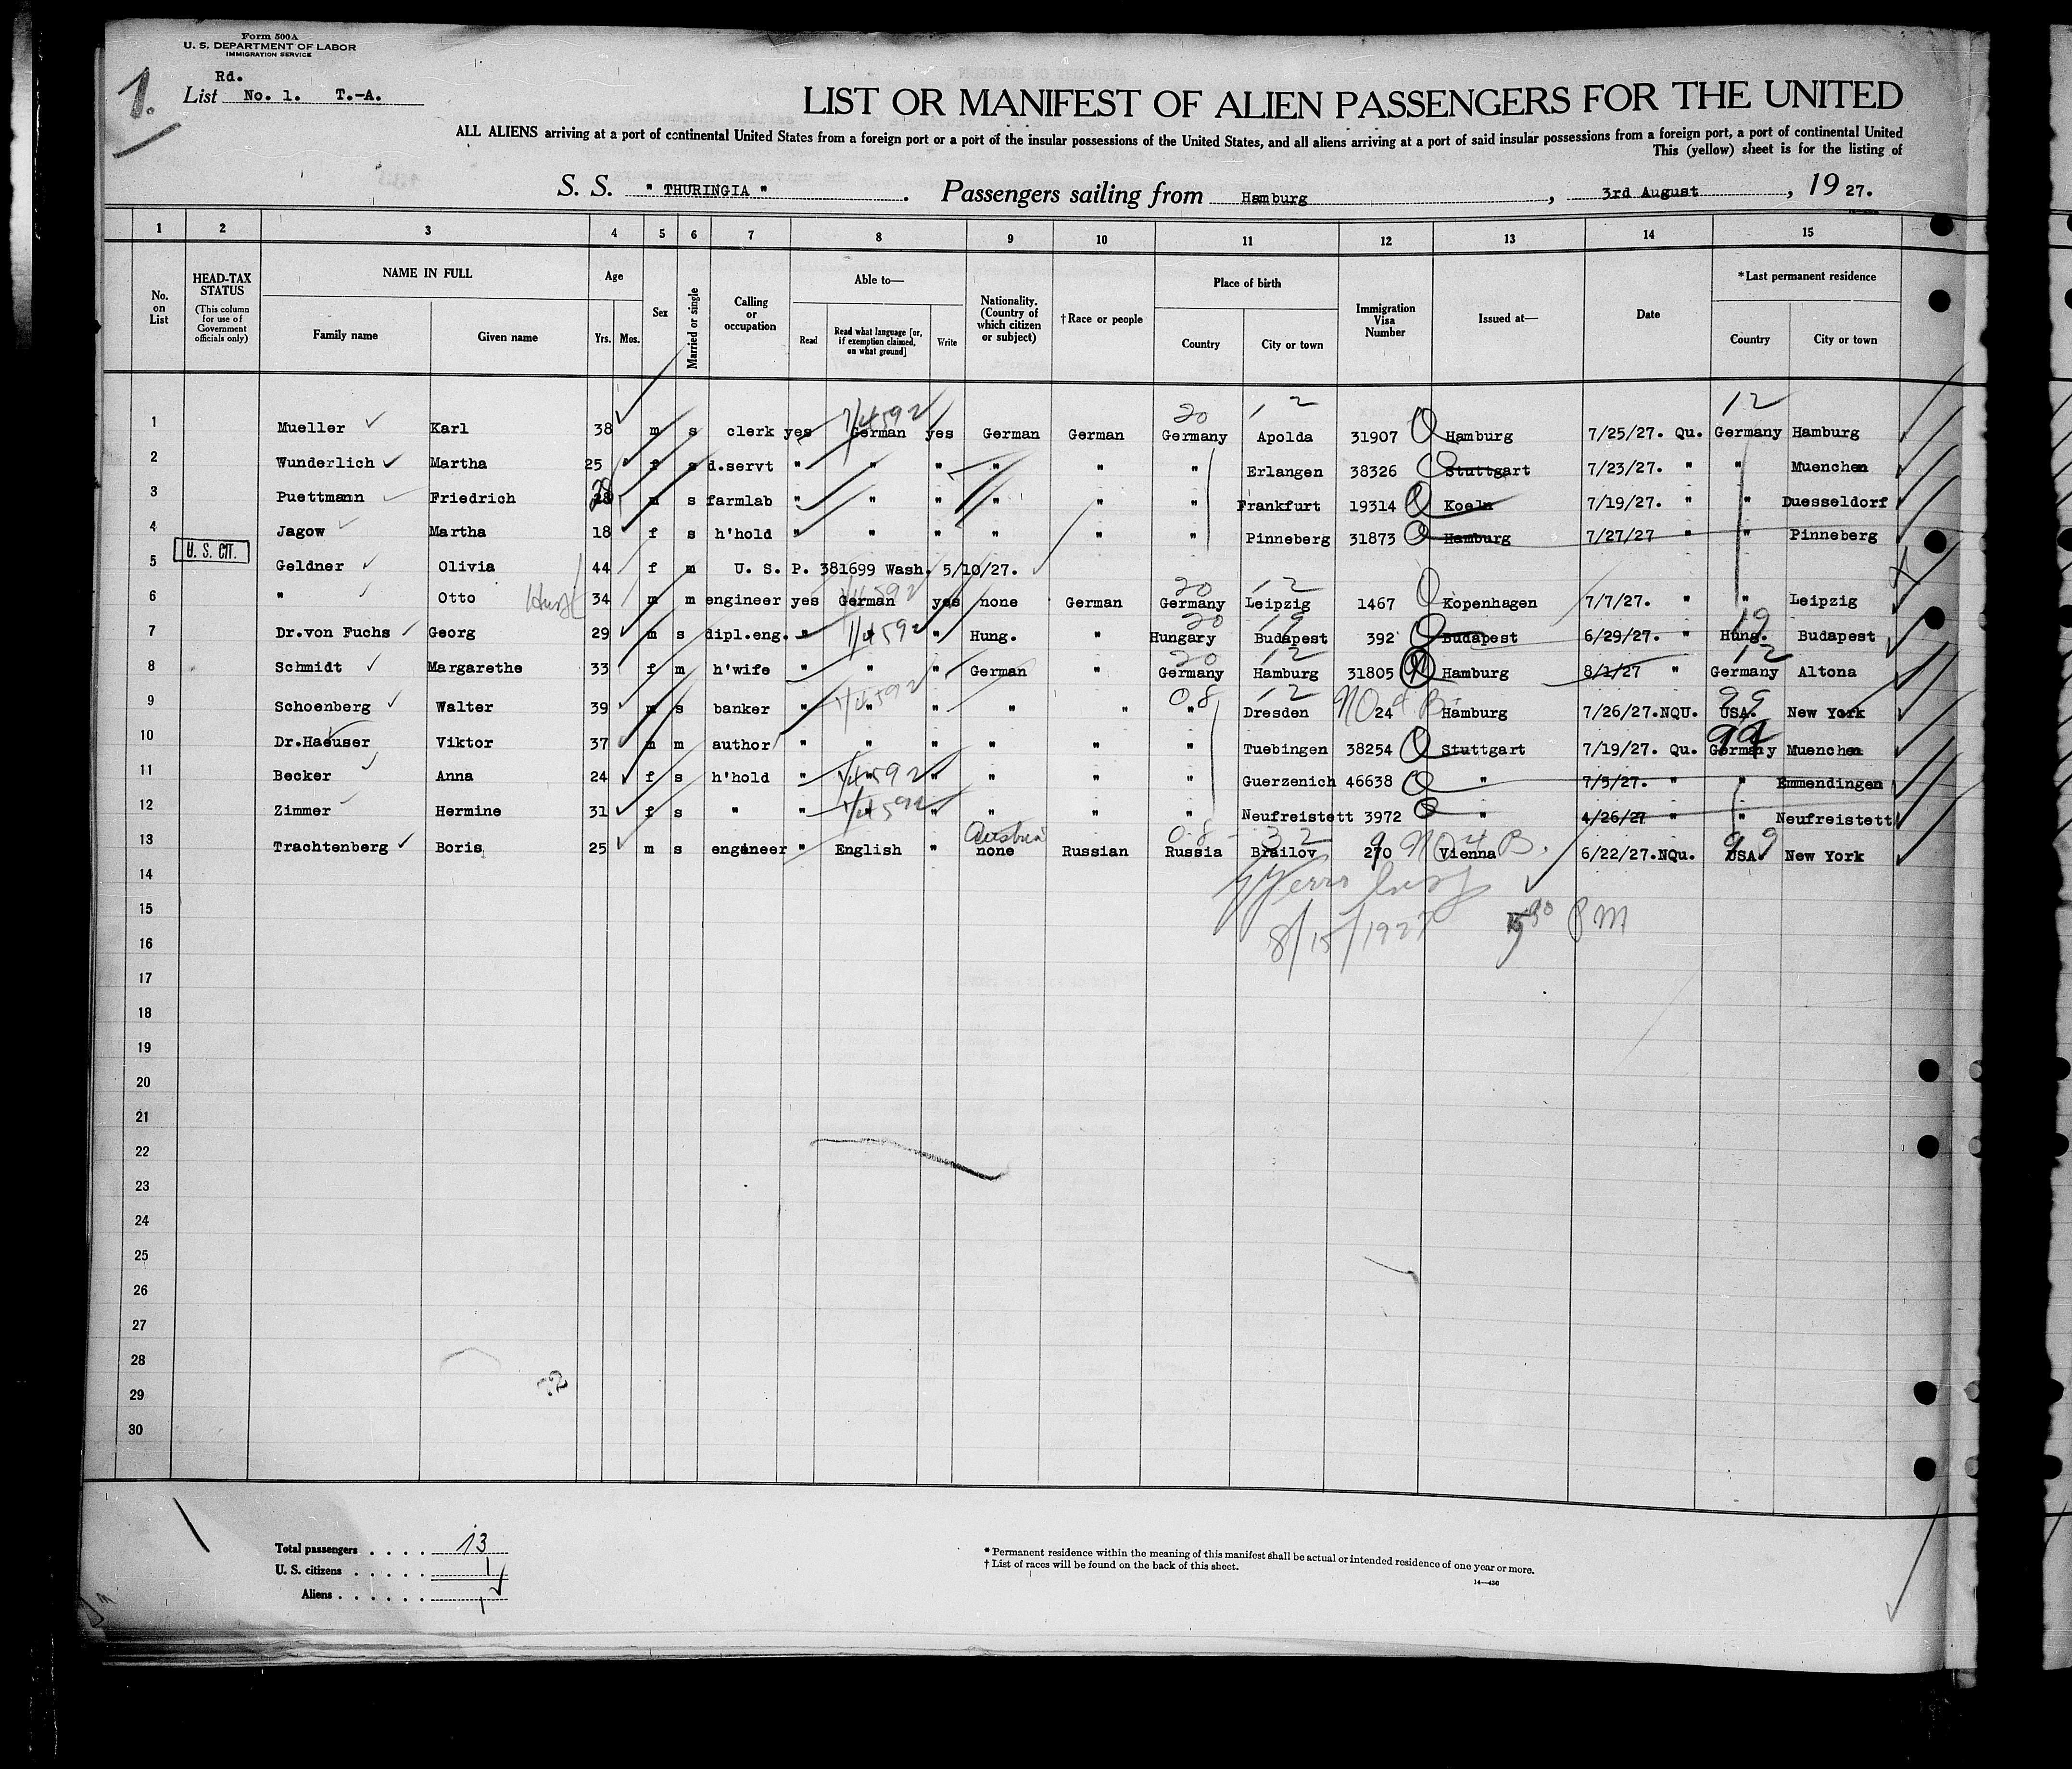 Form 500A
U. S. DEPARTMENT OF LABOR
IMMIGRATION SERVICE
1.
Rd.
List No. 1. T.-A.
LIST OR MANIFEST OF ALIEN PASSENGERS FOR THE UNITED
ALL ALIENS arriving at a port of continental United States from a foreign port or a port of the insular possessions of the United States, and all aliens arriving at a port of said insular possessions from a foreign port, a port of continental United
This (yellow) sheet is for the listing of
S. S. " THURINGIA " . Passengers sailing from Hamburg , 3rd August , 19 27.
1 2 3 4 5 6 7 8 9 10 11 12 13 14 15
No. on List
HEAD-TAX STATUS
(This column for use of Government officials only)
NAME IN FULL
Family name Given name
Age
Yrs. Mos.
Sex
Married or single
Calling or occupation
Able to—
Read Read what language [or, if exemption claimed, on what ground] Write
Nationality. (Country of which citizen or subject)
†Race or people
Place of birth
Country City or town
Immigration Visa Number
Issued at—
Date
*Last permanent residence
Country City or town
1/4592 20 12 12
1 Mueller Karl 38 m s clerk yes German yes German German Germany Apolda 31907 Hamburg 7/25/27. Qu. Germany Hamburg
2 Wunderlich Martha 25 f s d.servt " " " " " " Erlangen 38326 Stuttgart 7/23/27. " " Muenchen
3 Puettmann Friedrich 28 m s farmlab " " " " " " Frankfurt 19314 Koeln 7/19/27. " " Duesseldorf
4 Jagow Martha 18 f s h'hold " " " " " " Pinneberg 31873 Hamburg 7/27/27 " " Pinneberg
U. S. CIT.
5 Geldner Olivia 44 f m U. S. P. 381699 Wash. 5/10/27.
1/4592 20 12
6 " Otto 34 m m engineer yes German yes none German Germany Leipzig 1467 Kopenhagen 7/7/27. " " Leipzig
1/4592 20 19 19
7 Dr.von Fuchs Georg 29 m s dipl.eng. " " " Hung. " Hungary Budapest 392 Budapest 6/29/27. " Hung. Budapest
20 12 12
8 Schmidt Margarethe 33 f m h'wife " " " German " Germany Hamburg 31805 Hamburg 8/1/27 " Germany Altona
1/4592 08 12 NO 4 B 99
9 Schoenberg Walter 39 m s banker " " " " " " Dresden 24 Hamburg 7/26/27.NQU. USA. New York
99
10 Dr.Haeuser Viktor 37 m m author " " " " " " Tuebingen 38254 Stuttgart 7/19/27. Qu. Germany Muenchen
1/4592
11 Becker Anna 24 f s h'hold " " " " " " Guerzenich 46638 " 7/5/27. " " Emmendingen
1/4592
12 Zimmer Hermine 31 f s " " " " " " " Neufreistett 3972 " 4/26/27 " " Neufreistett
Austria 08 32 NO 4 B. 99
13 Trachtenberg Boris 25 m s engineer " English " none Russian Russia Brailov 270 Vienna 6/22/27.NQu. USA New York
14
15
8/15/1927 PM
16
17
18
19
20
21
22
23
24
25
26
27
28
29
30
Total passengers . . . . 13
U. S. citizens . . . . . 1
Aliens . . . . . .
* Permanent residence within the meaning of this manifest shall be actual or intended residence of one year or more.
† List of races will be found on the back of this sheet.
14—430